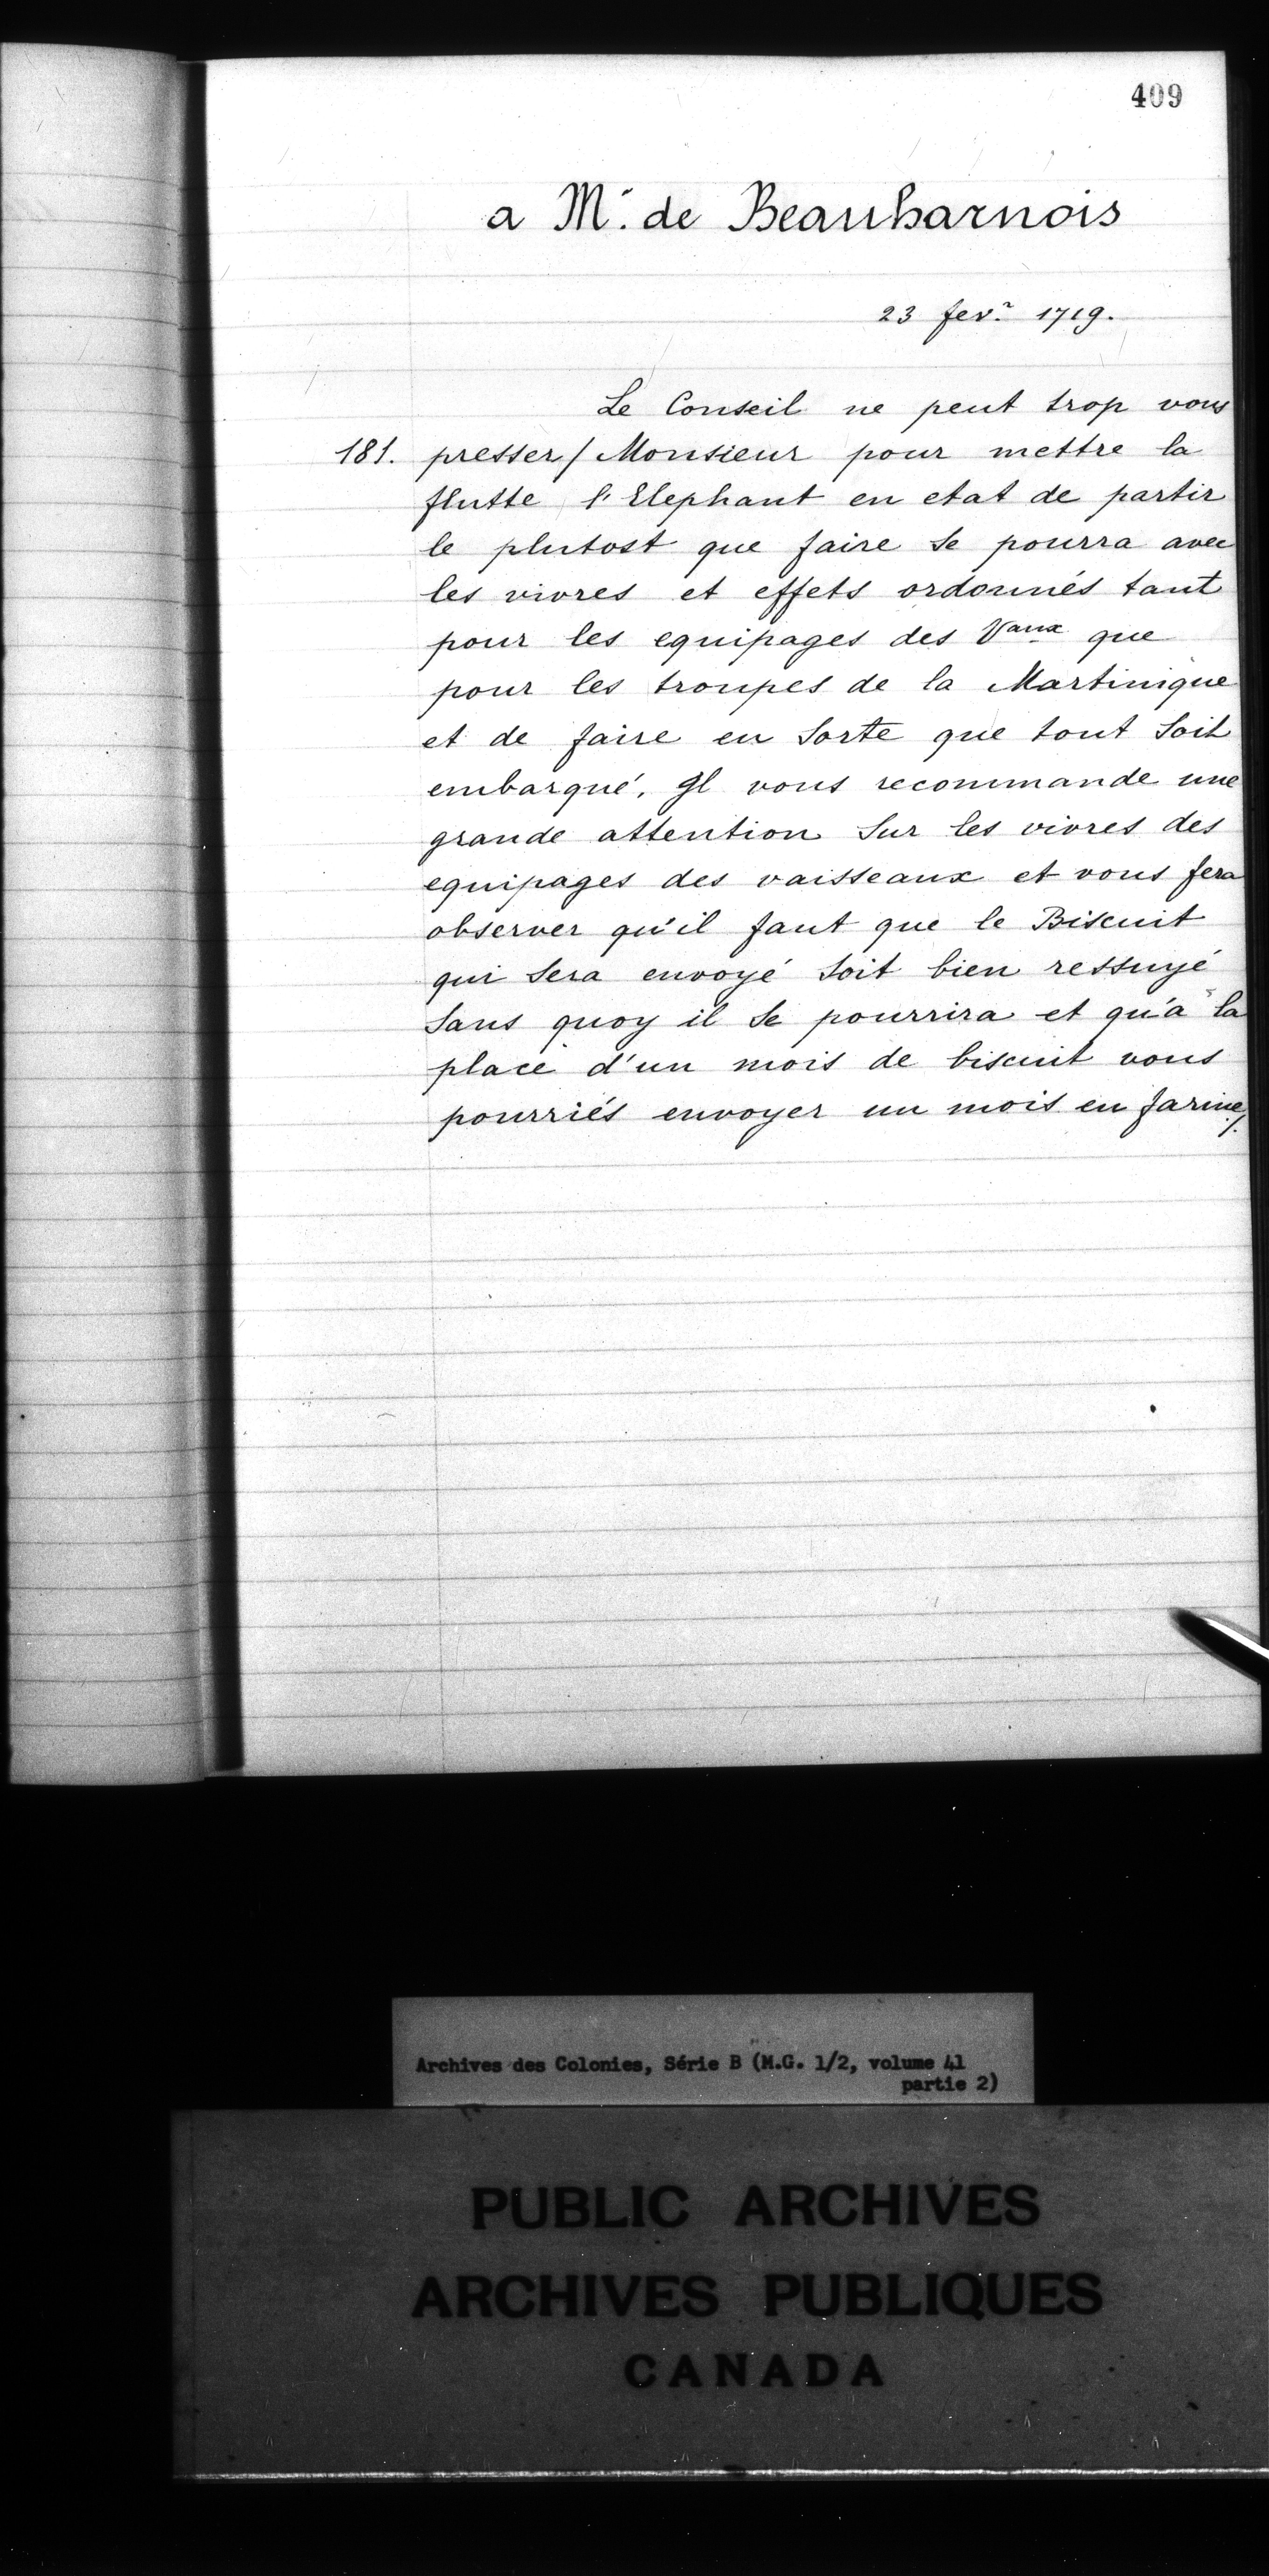 409
a Mr. de Beauharnois
23 fevr. 1719.
Le Conseil ne peut trop vous
181. presser / Monsieur pour mettre la
flutte l'Elephant en etat de partir
le plutost que faire se pourra avec
les vivres et effets ordonnés tant
pour les equipages des Vaux que
pour les troupes de la Martinique
et de faire en sorte que tout soit
embarqué. Il vous recommande une
grande attention sur les vivres des
equipages des vaisseaux et vous fera
observer qu'il faut que le Biscuit
qui sera envoyé soit bien ressuyé
sans quoy il se pourrira et qu'à la
place d'un mois de biscuit vous
pourriés envoyer un mois en farine /.
Archives des Colonies, Série B (M.G. 1/2, volume 41
partie 2)
PUBLIC ARCHIVES
ARCHIVES PUBLIQUES
CANADA